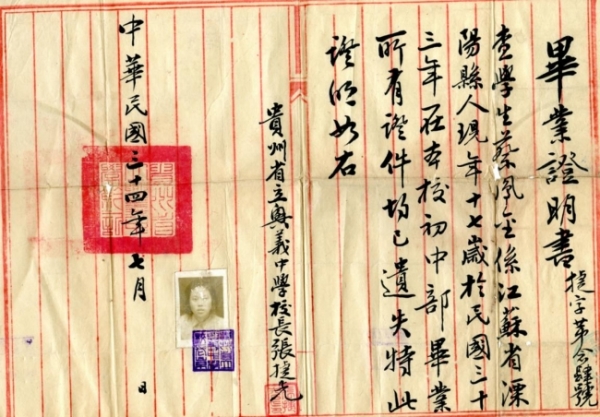 畢業證明書
捷字第叄肆號
查學生蔡鳳金係江蘇省溧
陽縣人現年十七歲於民國三十
三年在本校初中部畢業
所有證件均已遺失特此
證明如右
貴州省立興義中學校長張捷先
中華民國三十四年七月 日